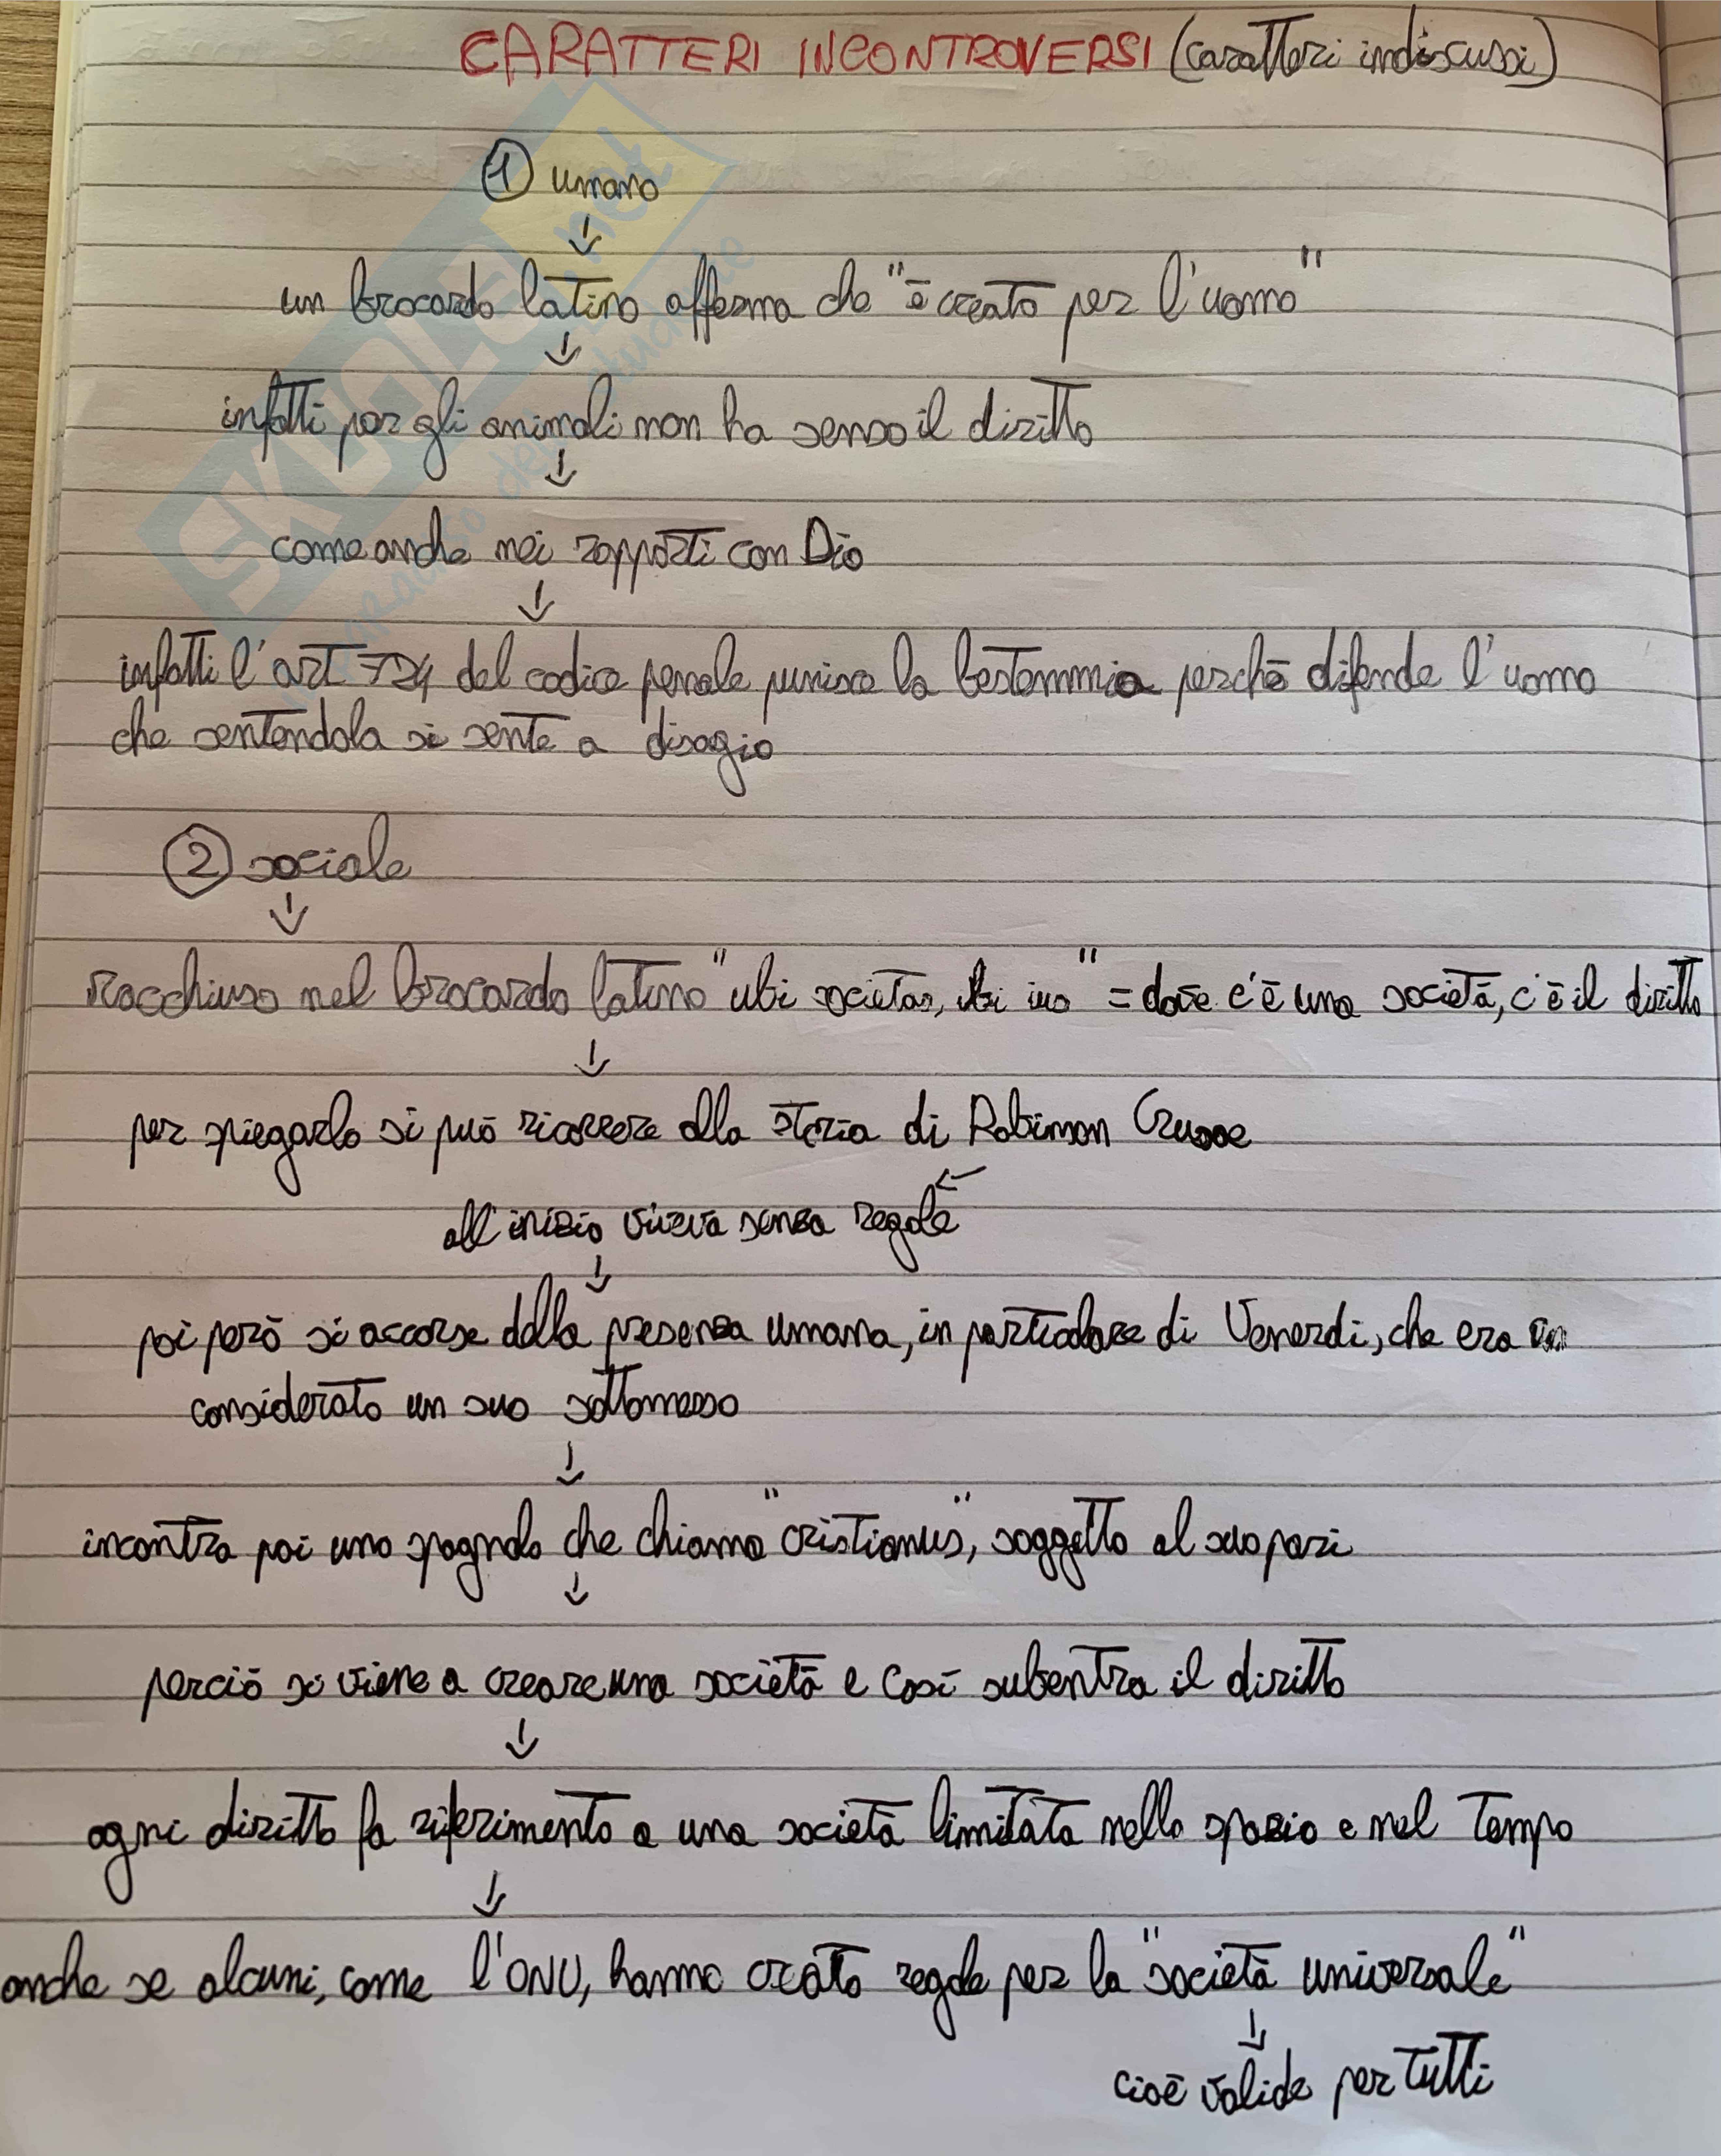 CARATTERI INCONTROVERSI (caratteri indiscussi)
1 umano
↓
un brocardo latino afferma che "è creato per l'uomo"
↓
infatti per gli animali non ha senso il diritto
↓
come anche nei rapporti con Dio
↓
infatti l'art 724 del codice penale punisce la bestemmia perché difende l'uomo
che sentendola si sente a disagio
2 sociale
↓
racchiuso nel brocardo latino "ubi societas, ibi ius" = dove c'è una società, c'è il diritto
↓
per spiegarlo si può ricorrere alla storia di Robinson Crusoe
←
all'inizio viveva senza regole
↓
poi però si accorse della presenza umana, in particolare di Venerdì, che era
considerato un suo sottomesso
↓
incontra poi uno spagnolo che chiama "cristianus", soggetto al suo pari
↓
perciò si viene a creare una società e così subentra il diritto
↓
ogni diritto fa riferimento a una società limitata nello spazio e nel tempo
↓
anche se alcuni, come l'ONU, hanno creato regole per la "società universale"
↓
cioè valide per tutti
SKUOLA.net
il paradiso dello studente